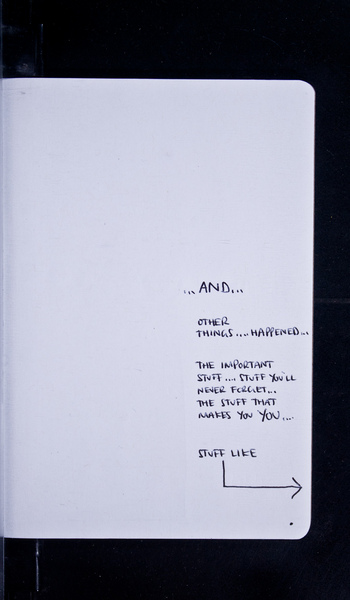 ...AND...
OTHER
THINGS....HAPPENED...
THE IMPORTANT
STUFF.... STUFF YOU'LL
NEVER FORGET...
THE STUFF THAT
MAKES YOU YOU....
STUFF LIKE